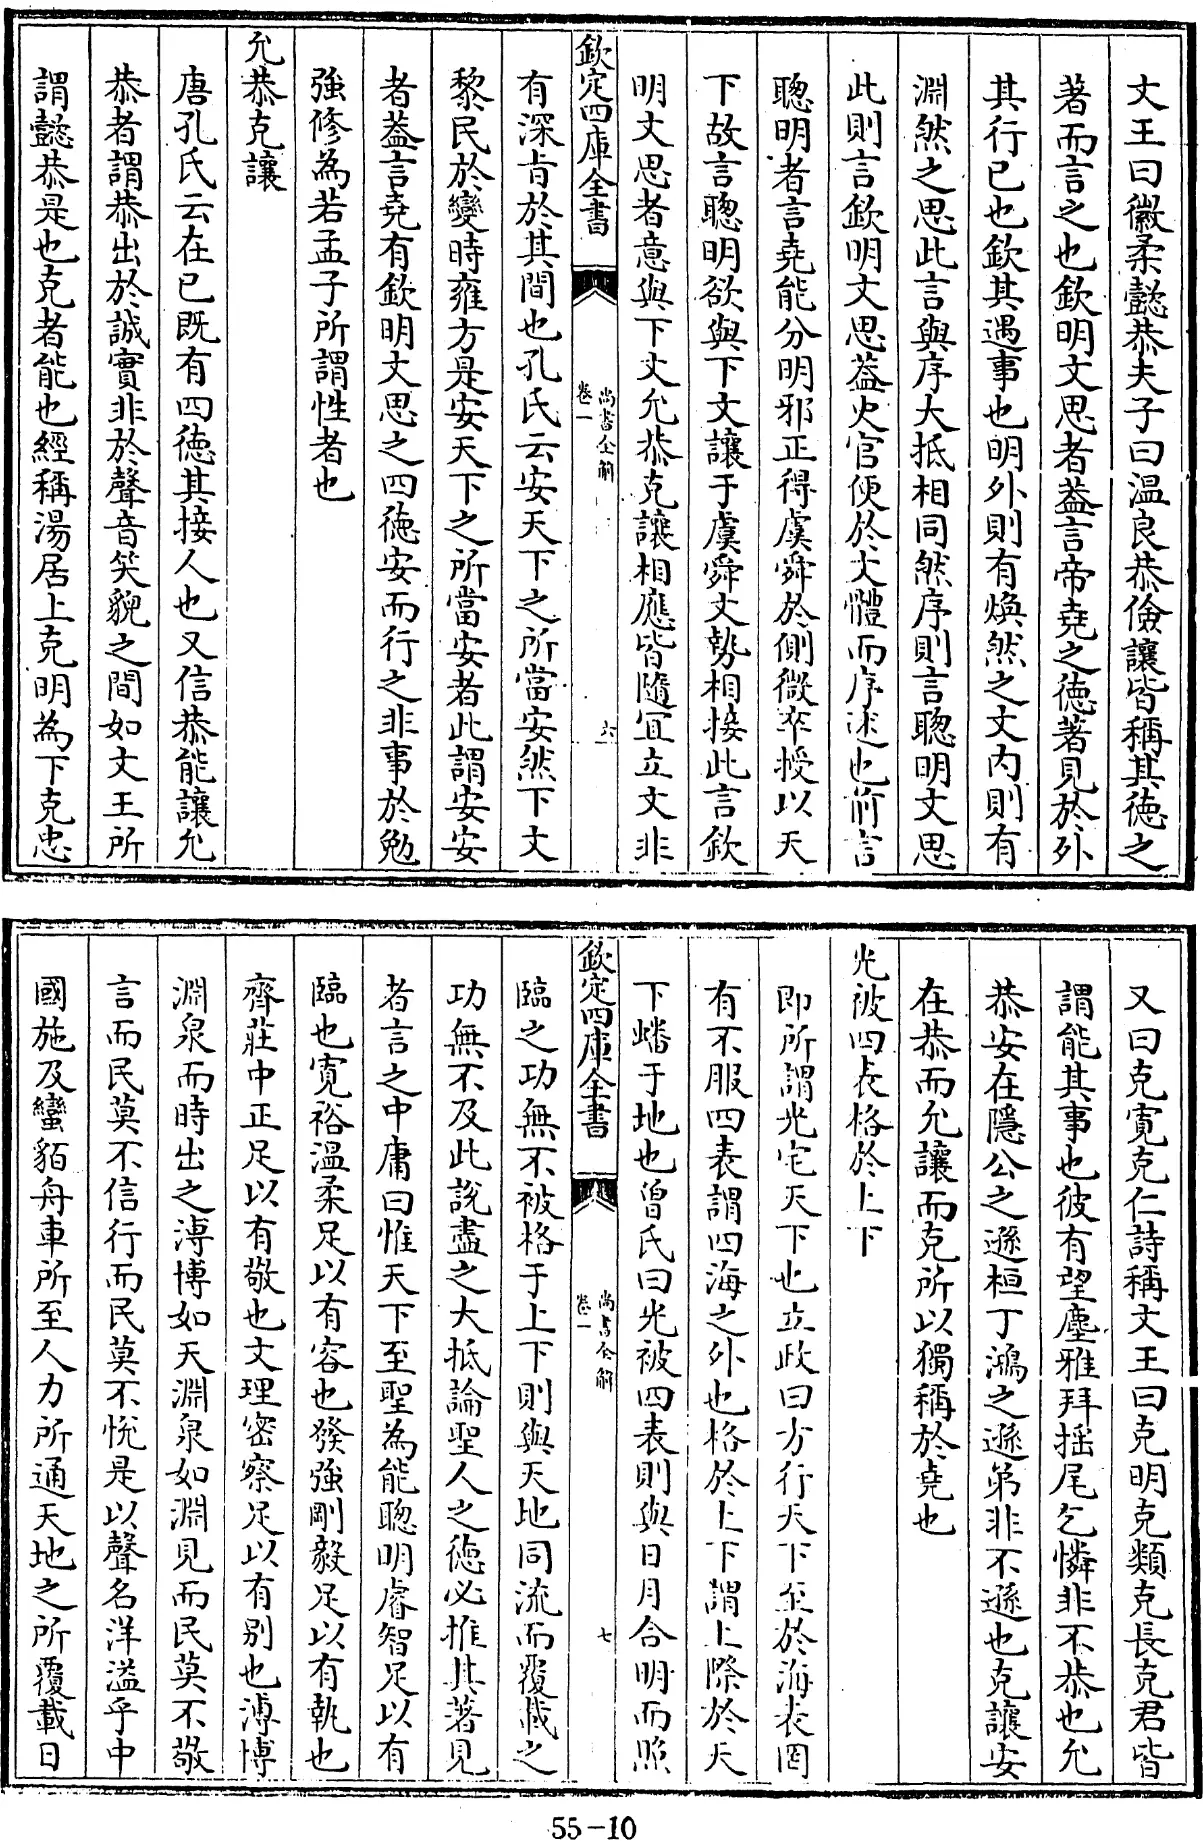 文王曰徽柔懿恭夫子曰温良恭儉讓皆稱其徳之
著而言之也欽明文思者葢言帝堯之徳著見於外
其行已也欽其遇事也明外則有煥然之文内則有
淵然之思此言與序大抵相同然序則言聰明文思
此則言欽明文思葢史官便於文體而序述也前言
聰明者言堯能分明邪正得虞舜於側微卒授以天
下故言聰明欲與下文讓于虞舜文勢相接此言欽
明文思者意與下文允恭克讓相應皆隨宜立文非
欽定四庫全書
尚書全解
卷一
六
有深㫖於其間也孔氏云安天下之所當安然下文
黎民於變時雍方是安天下之所當安者此謂安安
者葢言堯有欽明文思之四徳安而行之非事於勉
強修為若孟子所謂性者也
允恭克讓
唐孔氏云在已既有四徳其接人也又信恭能讓允
恭者謂恭出於誠實非於聲音笑貌之間如文王所
謂懿恭是也克者能也經稱湯居上克明為下克忠
又曰克寛克仁詩稱文王曰克明克類克長克君皆
謂能其事也彼有望塵雅拜揺尾乞憐非不恭也允
恭安在隱公之遜桓丁鴻之遜弟非不遜也克讓安
在恭而允讓而克所以獨稱於堯也
光被四表格於上下
即所謂光宅天下也立政曰方行天下至於海表罔
有不服四表謂四海之外也格於上下謂上際於天
下蟠于地也曾氏曰光被四表則與日月合明而照
欽定四庫全書
尚書全解
卷一
七
臨之功無不被格于上下則與天地同流而覆載之
功無不及此說盡之大抵論聖人之徳必推其著見
者言之中庸曰惟天下至聖為能聰明睿智足以有
臨也寛裕温柔足以有容也發強剛毅足以有執也
齊莊中正足以有敬也文理密察足以有别也溥博
淵泉而時出之溥博如天淵泉如淵見而民莫不敬
言而民莫不信行而民莫不悅是以聲名洋溢乎中
國施及蠻貊舟車所至人力所通天地之所覆載日
55-10